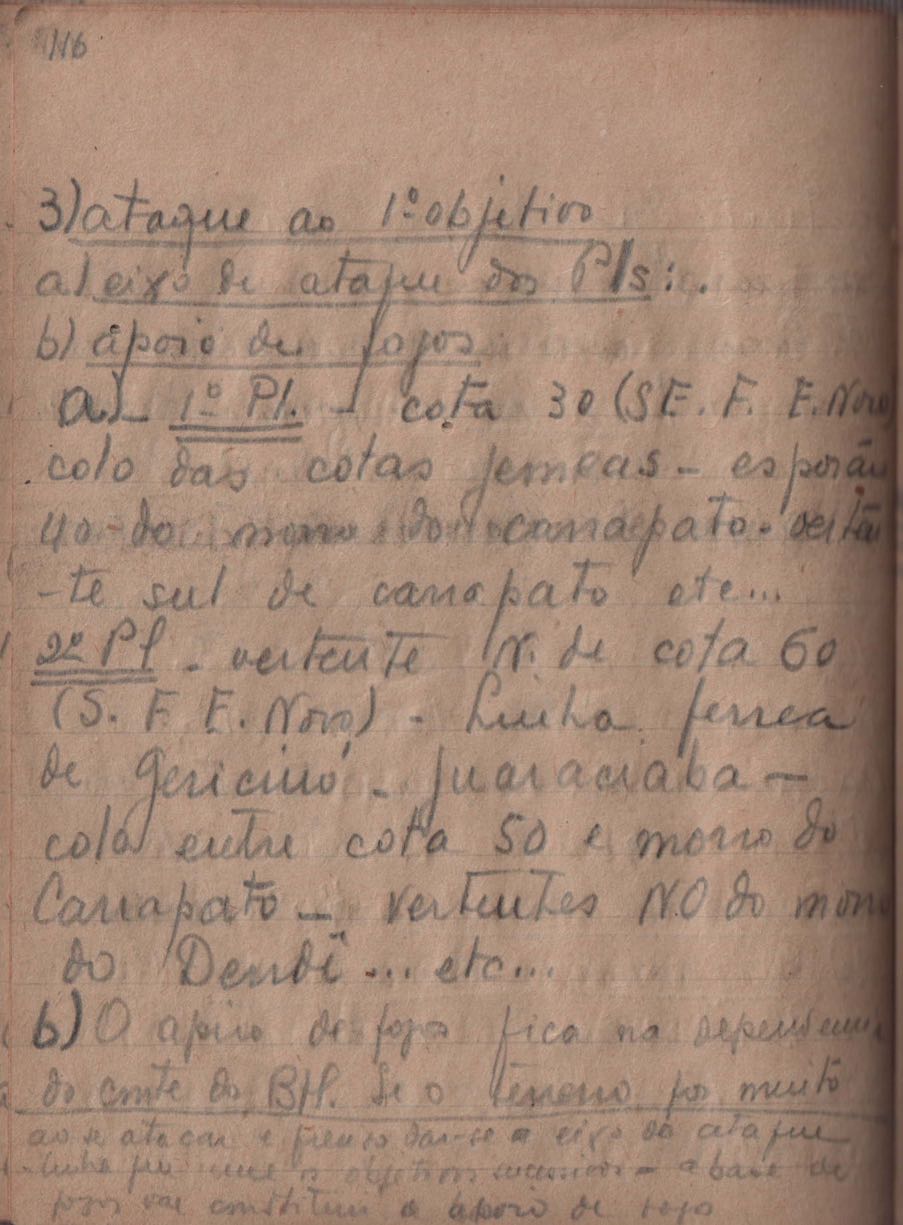 116
3) ataque ao 1º objetivo
a) eixo de ataque dos Pls:.
b) apoio de fogos
a)- 1º Pl. - cota 30 (S E. F. E. Novo)
colo das cotas gemeas - esporão
40 - do morro do carrapato - vertên
-te sul de carrapato etc...
2º Pl - vertente N. de cota 60
(S. F. E. Novo) - Linha ferrea
de Gericinó - Guaraciaba -
colo entre cota 50 e morro do
Carrapato - vertentes NO do morro
do Dendê ... etc...
b) O apoio de fogos fica na dependencia
do cmte do BH. Se o terreno for muito
ao se atacar é preciso dar-se o eixo do ataque
linha que une os objetivos sucessivos - a base de
fogos vae constituir o apoio de fogo